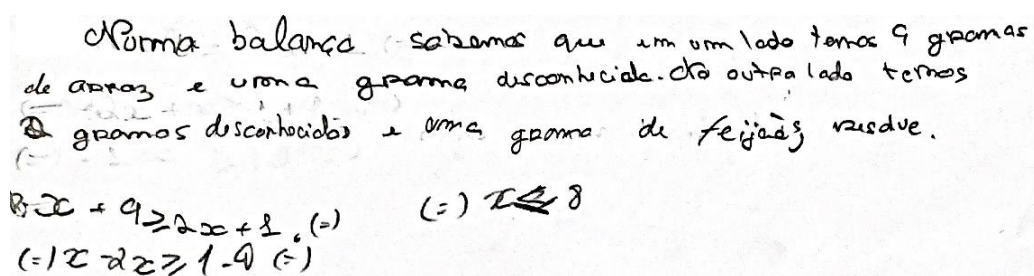 Numa balança sabemos que em um lado temos 9 gramas
de arroz e uma grama desconhecida. do outro lado temos
2 gramas desconhecidos e uma grama de feijão, resolve.
R- x + 9 ≥ 2x + 1 (=) (=) x ≤ 8
(=) x - 2x ≥ 1 - 9 (=)